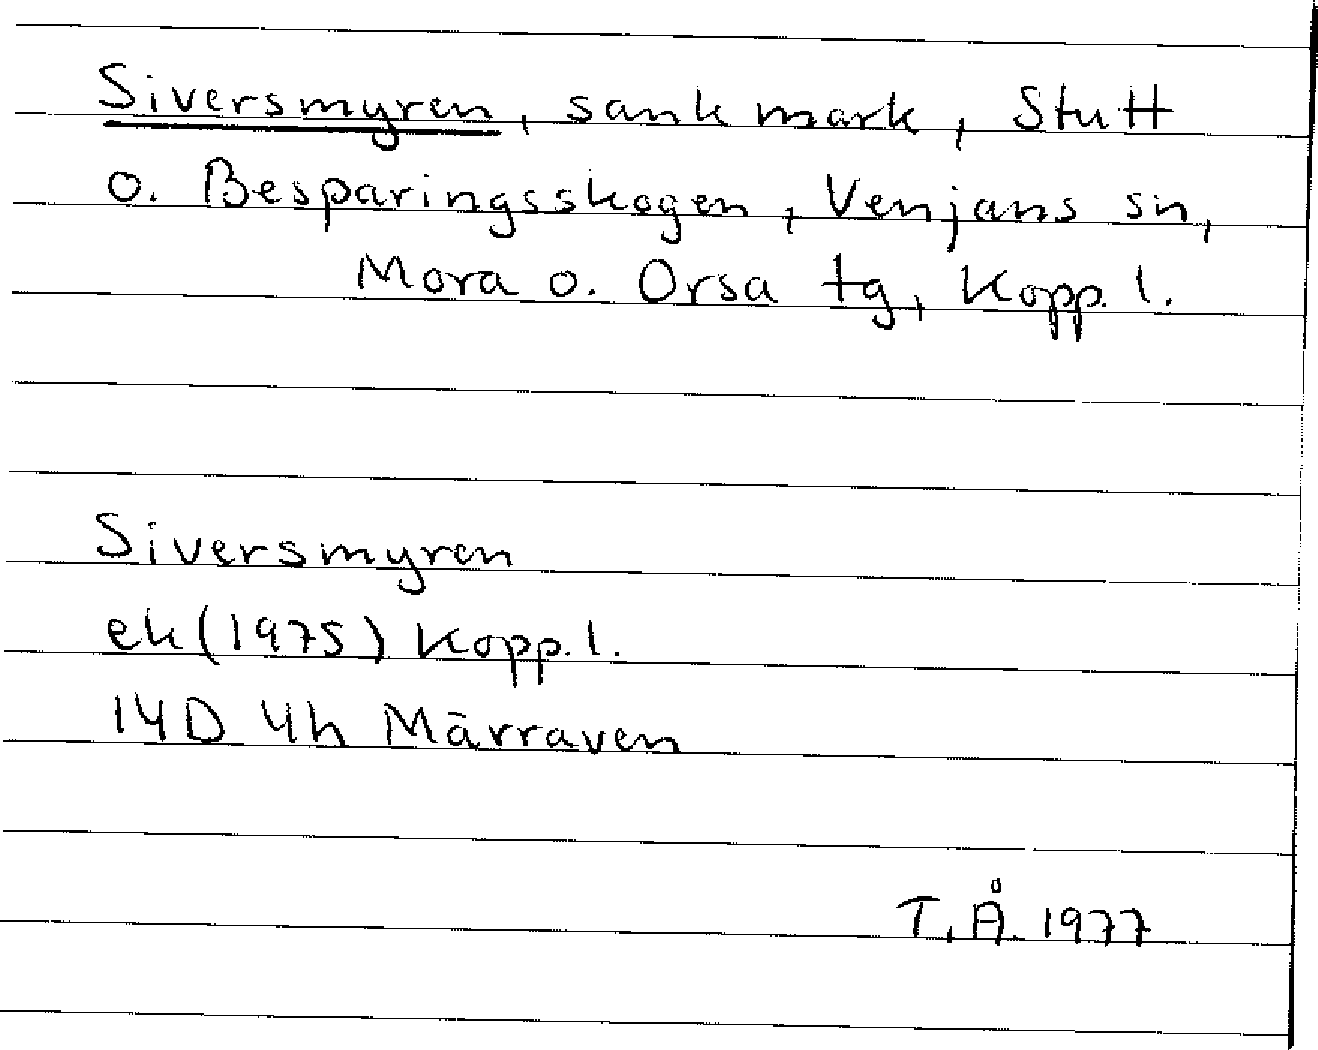 Siversmyren, sank mark, Stutt
o. Besparingsskogen, Venjans sn,
Mora o. Orsa tg, Kopp. l.
Siversmyren
ek (1975) Kopp. l.
14D 4h Märraven
T.Å. 1977